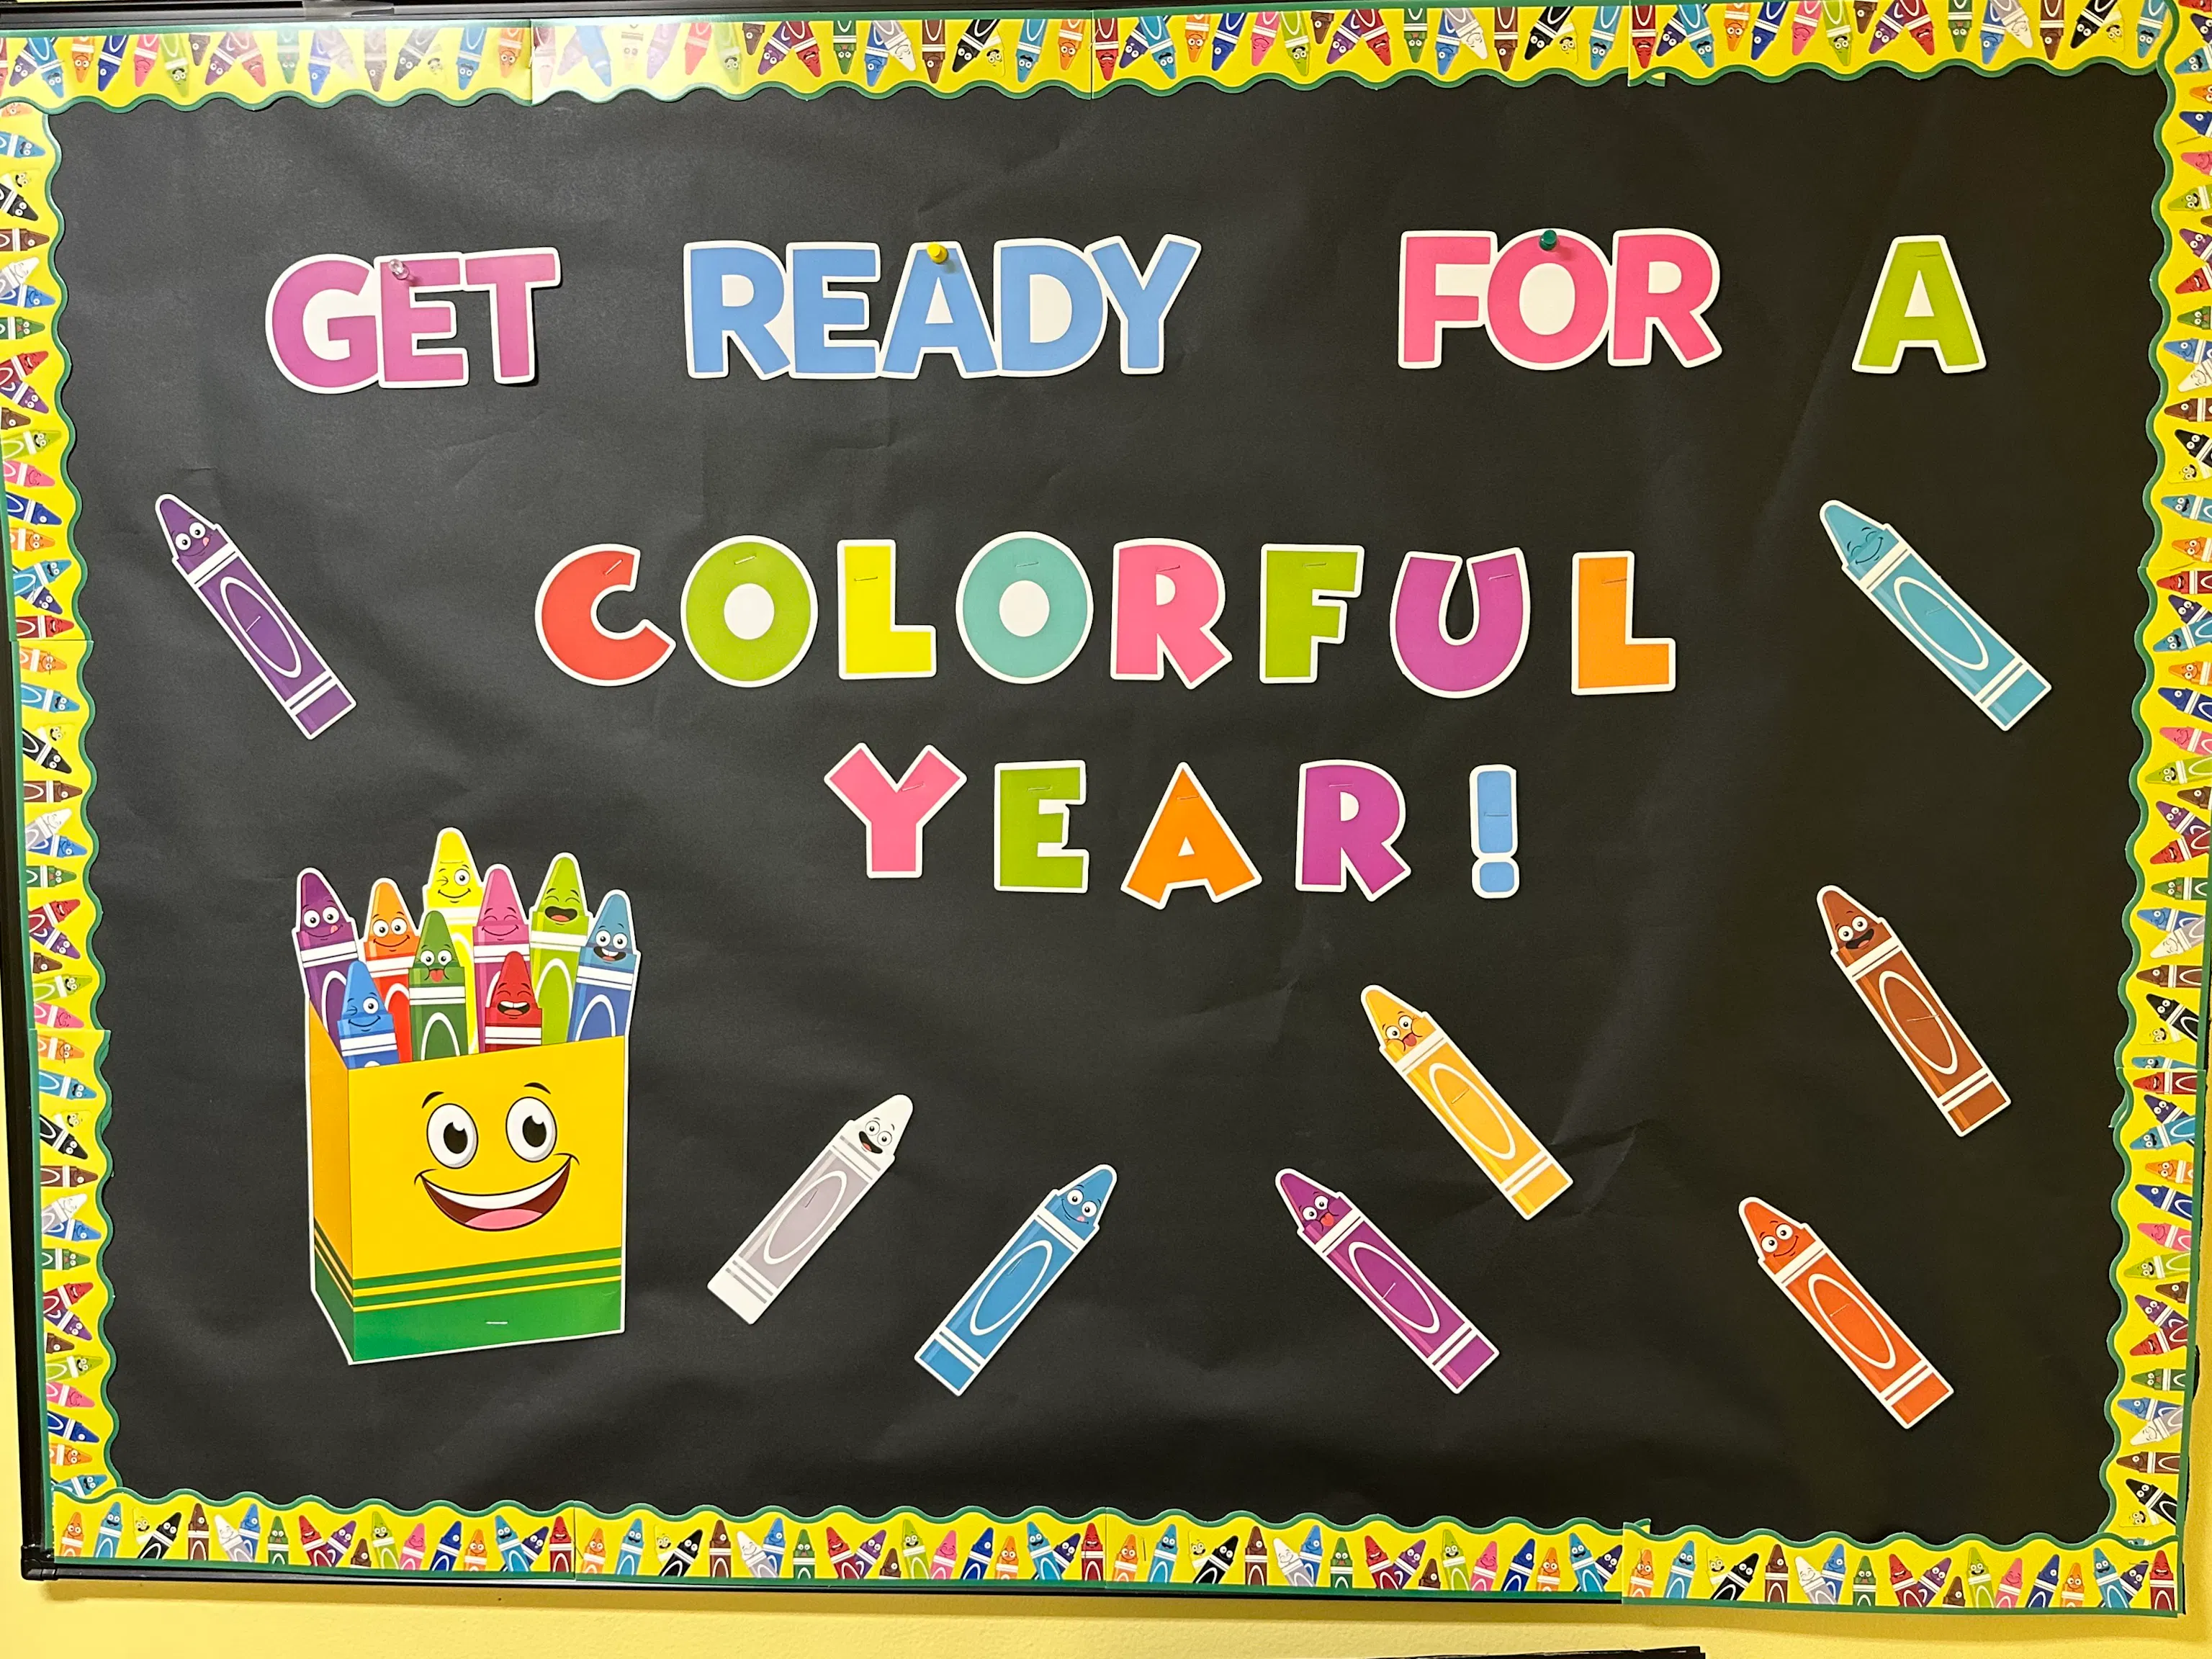 GET READY FOR A
COLORFUL
YEAR!